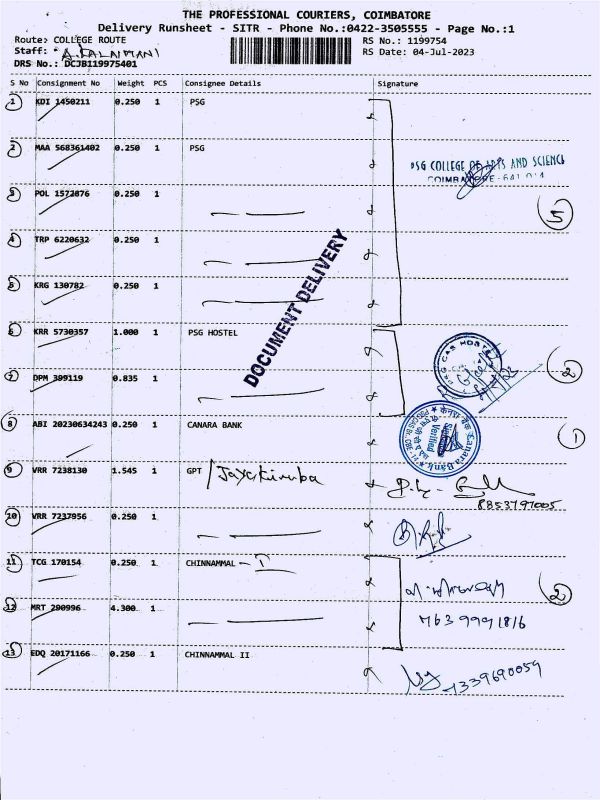 THE PROFESSIONAL COURIERS, COIMBATORE
Delivery Runsheet - SITR - Phone No.:0422-3505555 - Page No.:1
Route: COLLEGE ROUTE
RS No.: 1199754
Staff:
RS Date: 04-Jul-2023
DRS No.: DCJB119975401
S No Consignment No Weight PCS Consignee Details Signature
1 KDI 1450211 0.250 1 PSG
2 MAA 568361402 0.250 1 PSG
PSG COLLEGE OF ARTS AND SCIENCE
COIMBATORE - 641 014
3 POL 1572876 0.250 1
5
4 TRP 6220632 0.250 1
5 KRG 130782 0.250 1
DOCUMENT DELIVERY
6 KRR 5730357 1.000 1 PSG HOSTEL
2
7 DPM 399119 0.835 1
8 ABI 20230634243 0.250 1 CANARA BANK
1
9 VRR 7238130 1.545 1 GPT / Jayakiruba
8853797005
10 VRR 7237956 0.250 1
11 TCG 170154 0.250 1 CHINNAMMAL - I
2
12 MRT 290996 4.300 1
7639991816
13 EDQ 20171166 0.250 1 CHINNAMMAL II
7339690059